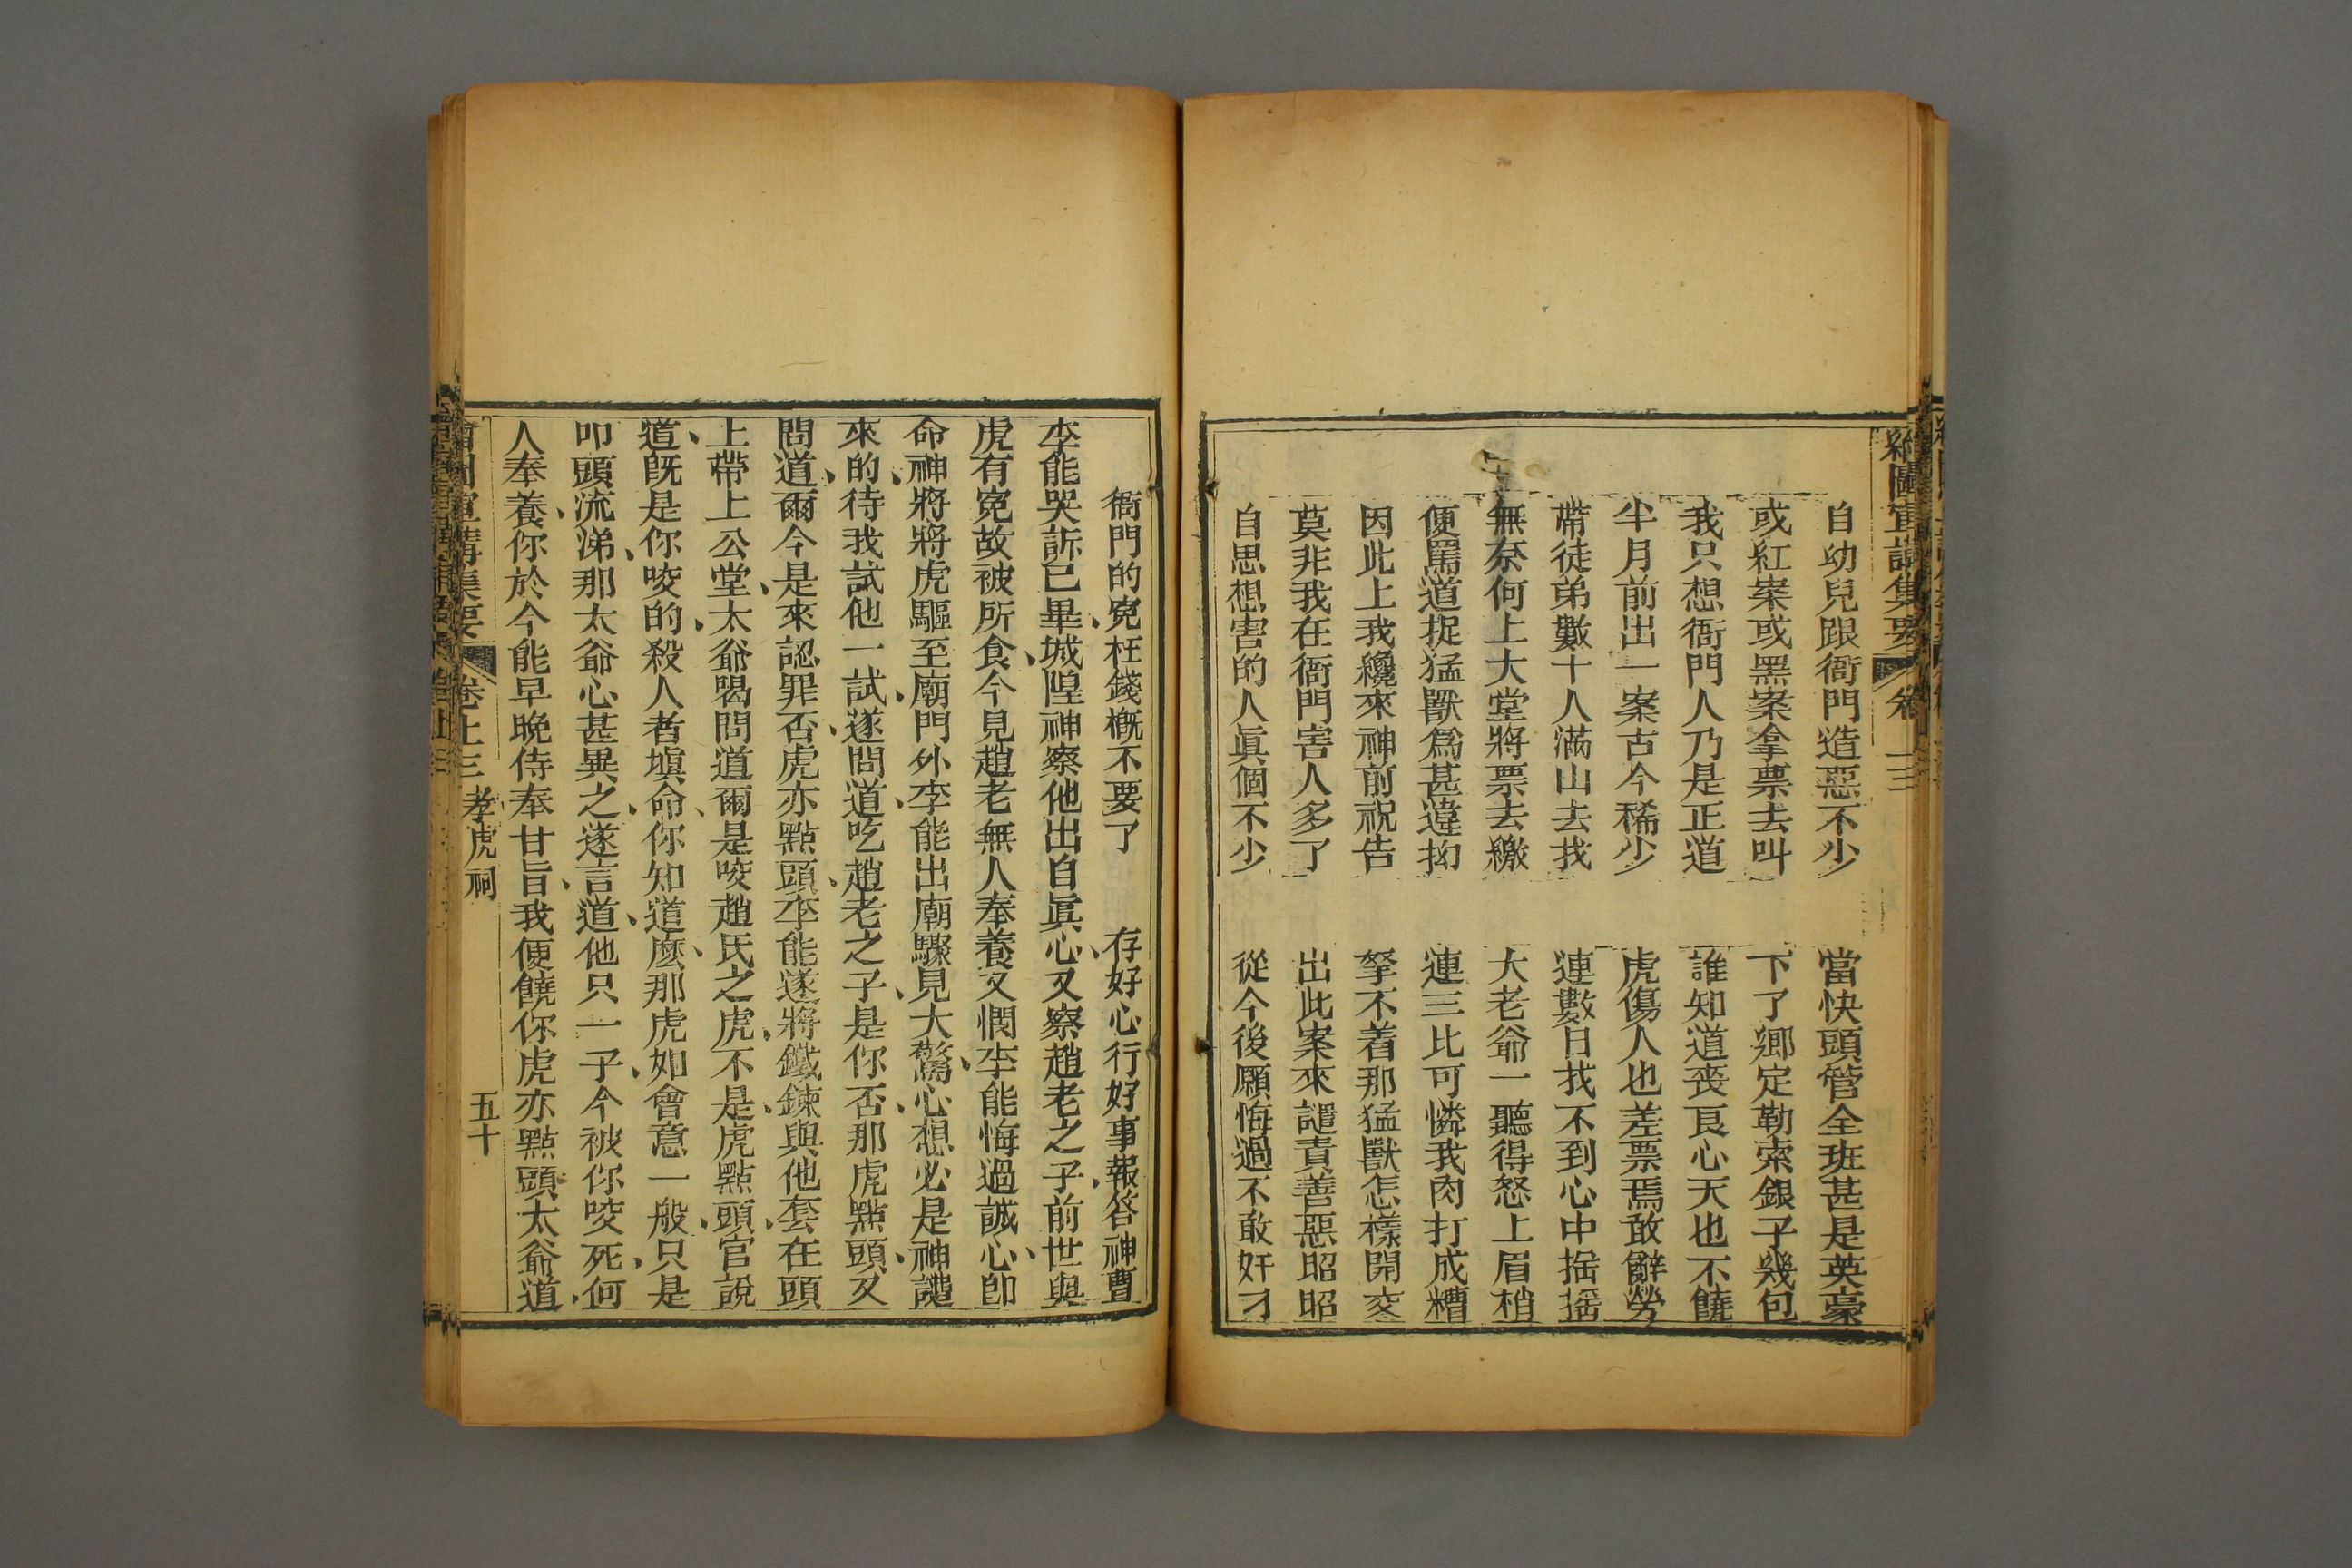 自幼兒跟衙門造惡不少　當快頭管全班甚是英豪
或紅案或黑案拿票去叫　下了鄉定勒索銀子幾包
我只想衙門人乃是正道　誰知道喪良心天也不饒
半月前出一案古今稀少　虎傷人也差票焉敢辭勞
帶徒弟數十人滿山去找　連數日找不到心中搖搖
無奈何上大堂將票去繳　大老爺一聽得怒上眉梢
便罵道捉猛獸爲甚違拗　連三比可憐我肉打成糟
因此上我纔來神前祝告　拏不着那猛獸怎樣開交
莫非我在衙門害人多了　出此案來譴責善惡昭昭
自思想害的人眞個不少　從今後願悔過不敢奸刁
衙門的寃枉錢概不要了　存好心行好事報答神曹
李能哭訴已畢、城隍神察他出自眞心、又察趙老之子、前世與
虎有寃、故被所食、今見趙老無人奉養、又憫李能悔過誠心、卽
命神將將虎驅至廟門外、李能出廟驟見大驚、心想必是神譴
來的、待我試他一試、遂問道、吃趙老之子、是你否、那虎點頭、又
問道、爾今是來認罪否、虎亦點頭、李能遂將鐵鍊與他套在頭
上、帶上公堂、太爺喝問道、爾是咬趙氏之虎、不是、虎點頭、官說
道、旣是你咬的、殺人者塡命、你知道麽、那虎如會意一般、只是
叩頭流涕、那太爺心甚異之、遂言道、他只一子、今被你咬死、何
人奉養、你於今能早晚侍奉甘旨、我便饒你、虎亦點頭、太爺道、
繪圖宣講集要　卷上三　孝虎祠　五十